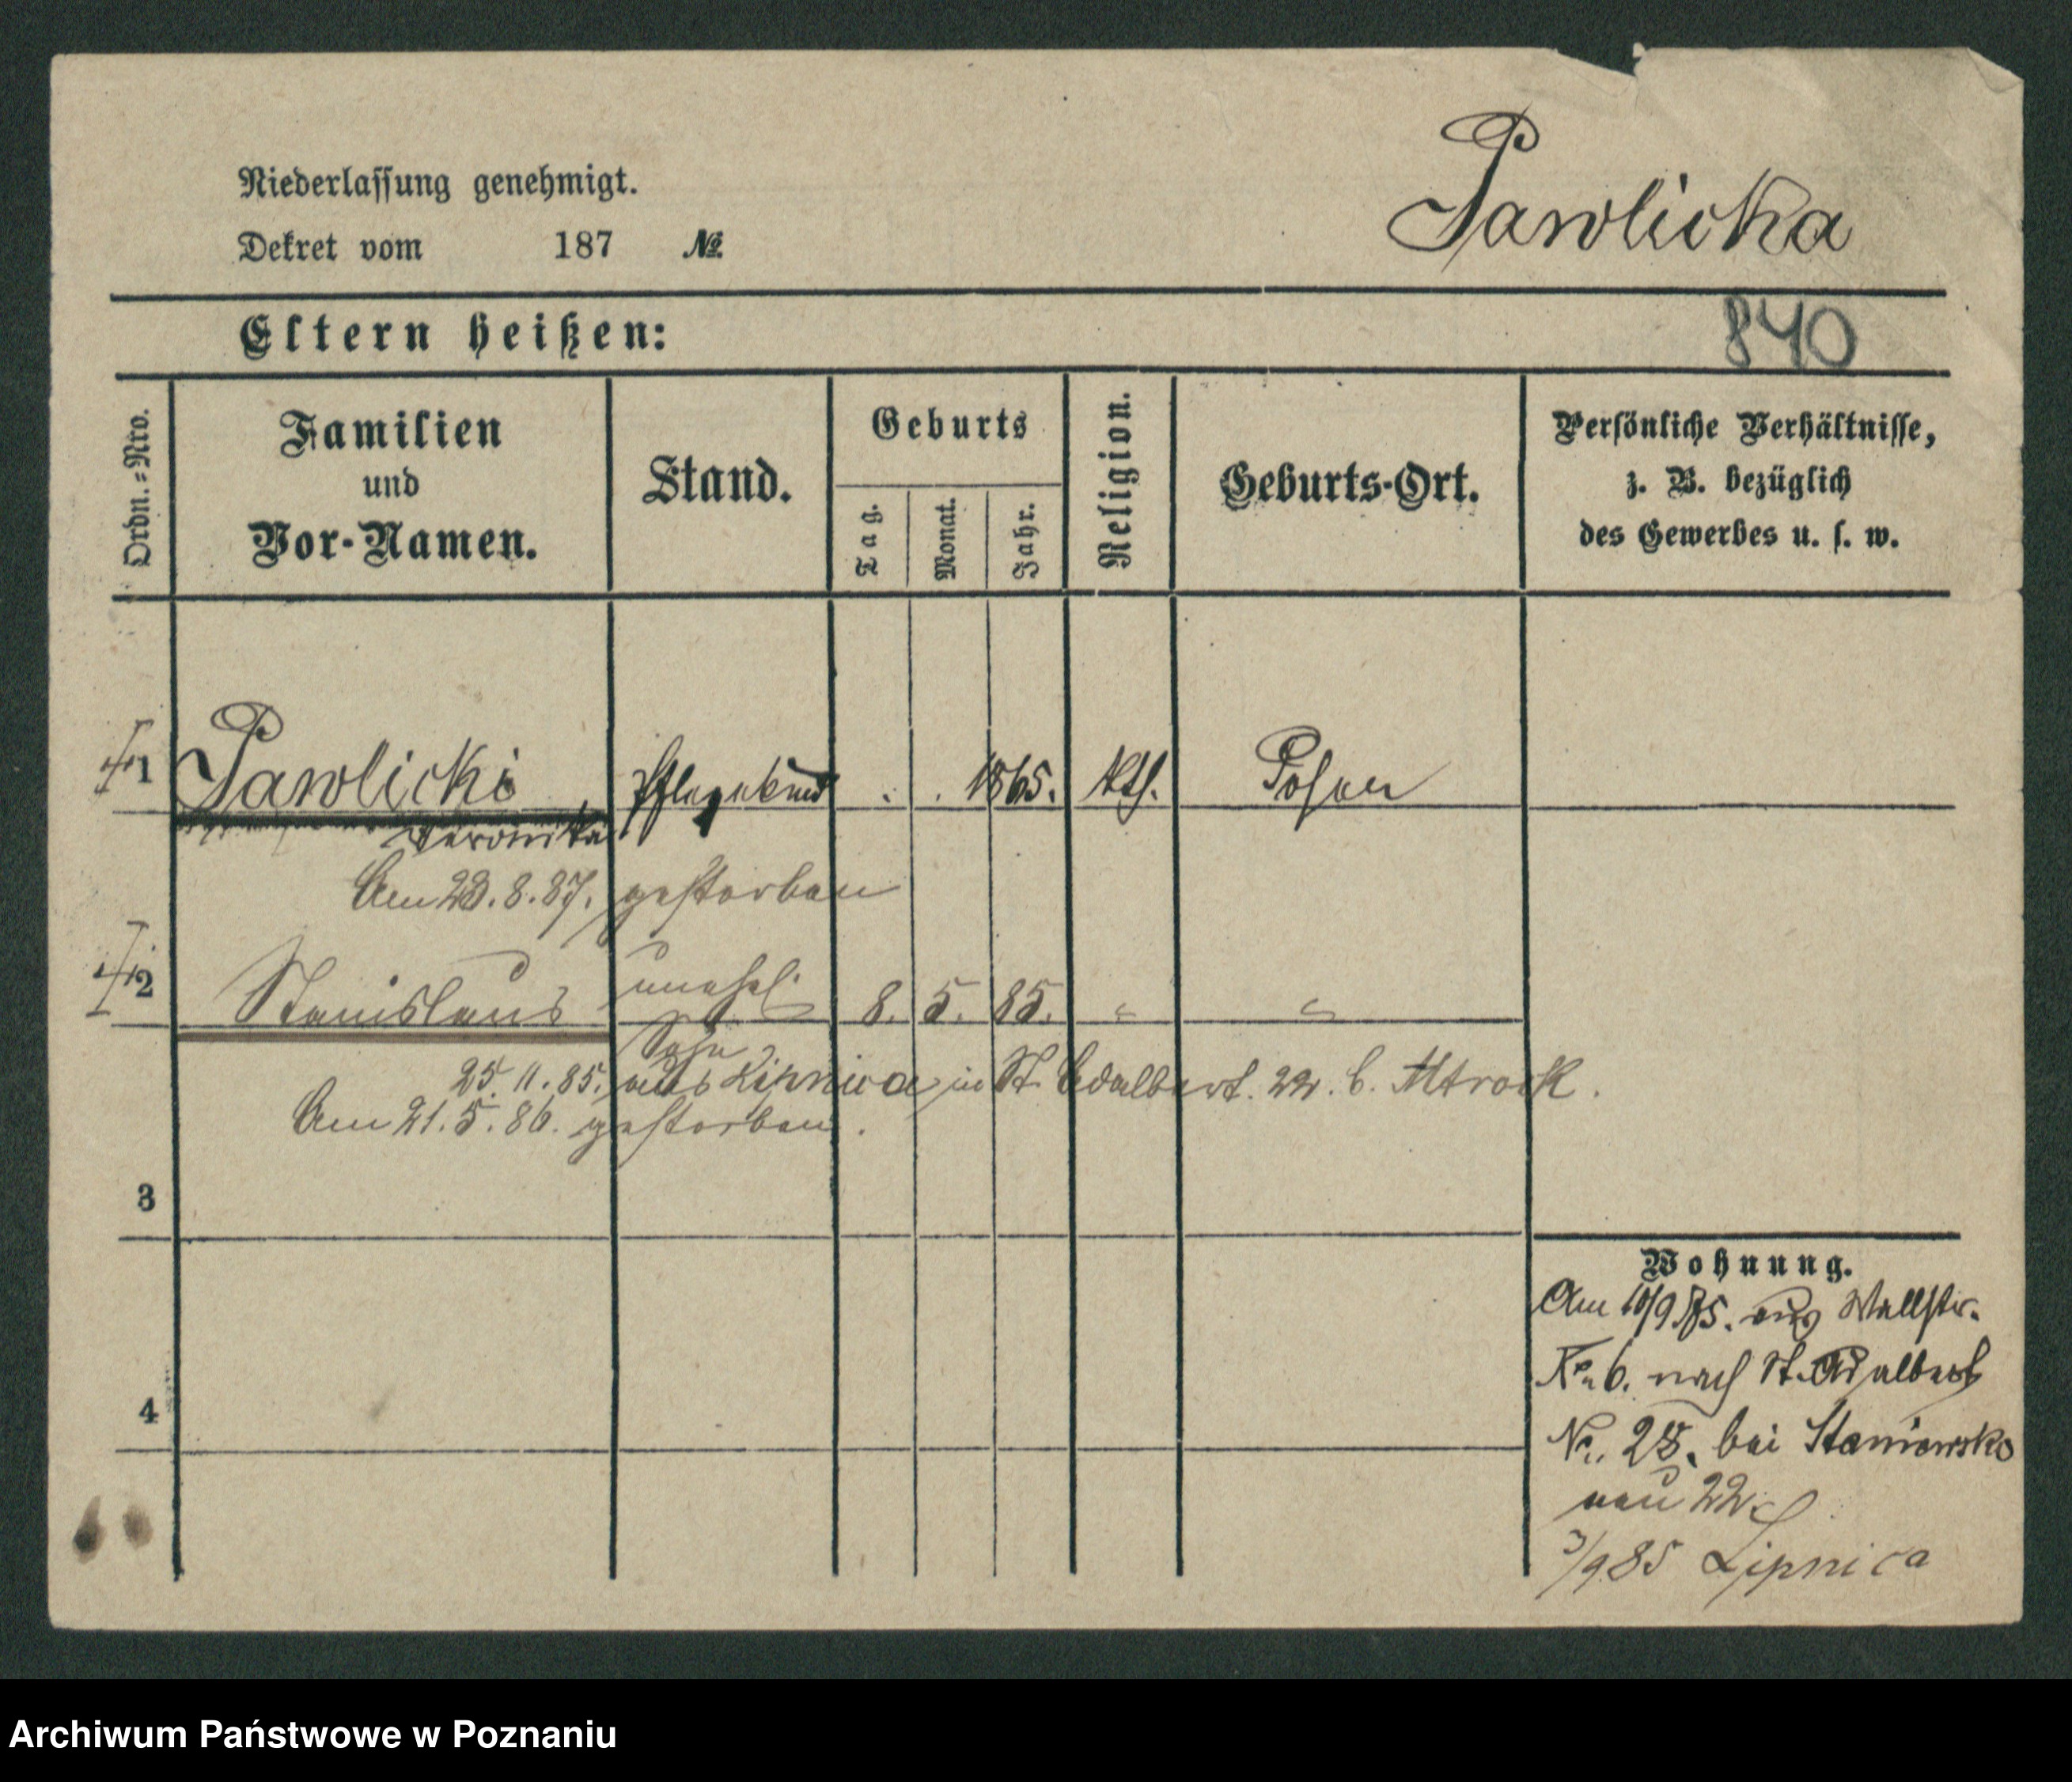 Pawlicka
Niederlassung genehmigt.
Dekret vom 187 №
840
Eltern heißen:
Ordn.=Nro.
Familien
und
Vor-Namen.
Stand.
Geburts
Tag.
Monat.
Jahr.
Religion.
Geburts-Ort.
Persönliche Verhältnisse,
z. B. bezüglich
des Gewerbes u. s. w.
1 Pawlicki Pflegekind . . 1865. Kth. Posen
Veronika
Am 23.8.87. gestorben
2 Stanislaus unehel. 8. 5. 85. " "
Sohn
25.11.85. aus Lipnica in St. Adalbert. 22. b. Mtrock.
Am 21.5.86. gestorben.
3
4
Wohnung.
Am 10/9 75. aus Wallstr.
No 6. nach St. Adalbert
No. 28. bei Staniewsko
neu 22
3/9 85 Lipnica
Archiwum Państwowe w Poznaniu